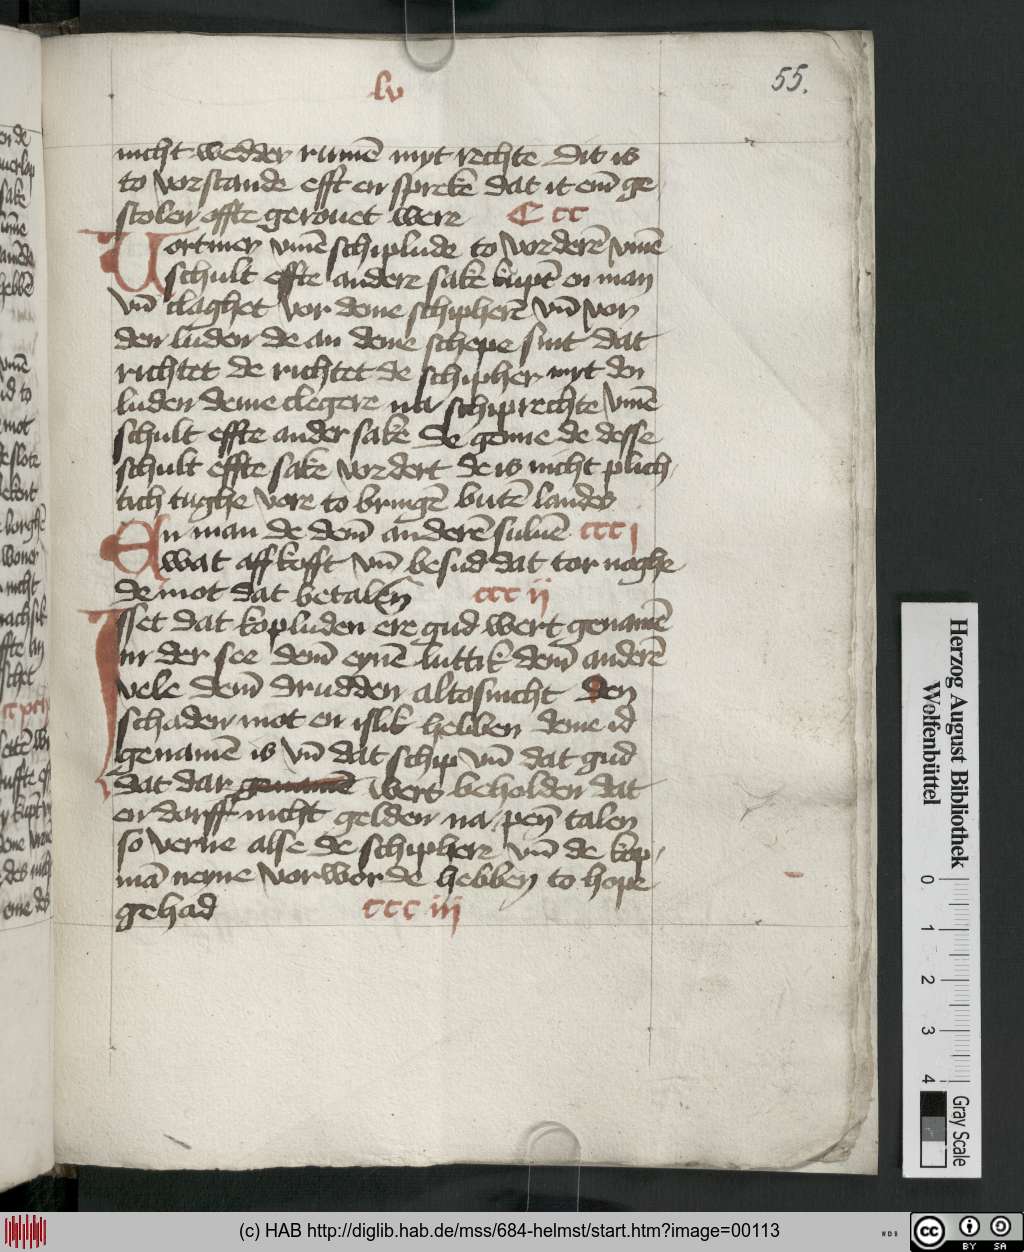 lv
55.
nicht wedder rumē myt rechte dit is
to vorstande efft en sprekē dat it em̄ ge
stolen offte gerouet were C cc
Vortmer vmē schiplude to vorderē vmē
schult effte andere sakē kupt en man
vn̄ claghet vor deme schipherē vn̄ vor
den luden de an deme schepe sint dat
richtet de richtet de schipher myt den
luden deme clegere na schiprechte vmē
schult effte ander sakē De genne de desse
schult effte sake vordert de is nicht plich
tich tughe vore to bringē butē landes
En man de dem̄ anderē suluē ccc i
wat aff kofft vn̄ besud dat tor noghe
de mot dat betalen ccc ii
Isset dat kopluden ere gud wert genamē
in der see dem̄ eynē luttik dem̄ anderē
vele dem̄ drudden altosnicht den
schaden mot en islik hebben deme id
genamē is vn̄ dat schip vn̄ dat gud
dat dar genamē wert beholden dat
en darff nicht gelden na pen̄ talen
so verne alse de schiphere vn̄ de kop
mā neyne vorworde hebben to hope
gehad ccc iii
Herzog August Bibliothek
Wolfenbüttel
0 1 2 3 4
Gray Scale
(c) HAB http://diglib.hab.de/mss/684-helmst/start.htm?image=00113
WDB
cc BY SA